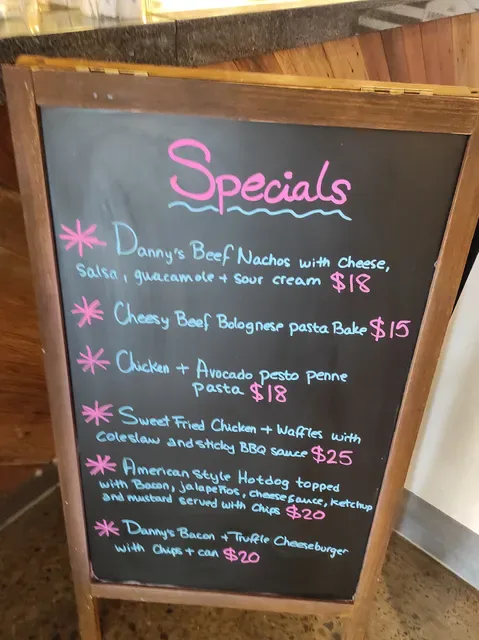 Specials
* Danny's Beef Nachos with cheese,
salsa, guacamole + sour cream $18
* Cheesy Beef Bolognese pasta Bake $15
* Chicken + Avocado pesto penne
pasta $18
* Sweet Fried Chicken + Waffles with
coleslaw and sticky BBQ sauce $25
* American Style Hotdog topped
with Bacon, jalapeños, cheese sauce, ketchup
and mustard served with Chips $20
* Danny's Bacon + Truffle Cheeseburger
with Chips + can $20